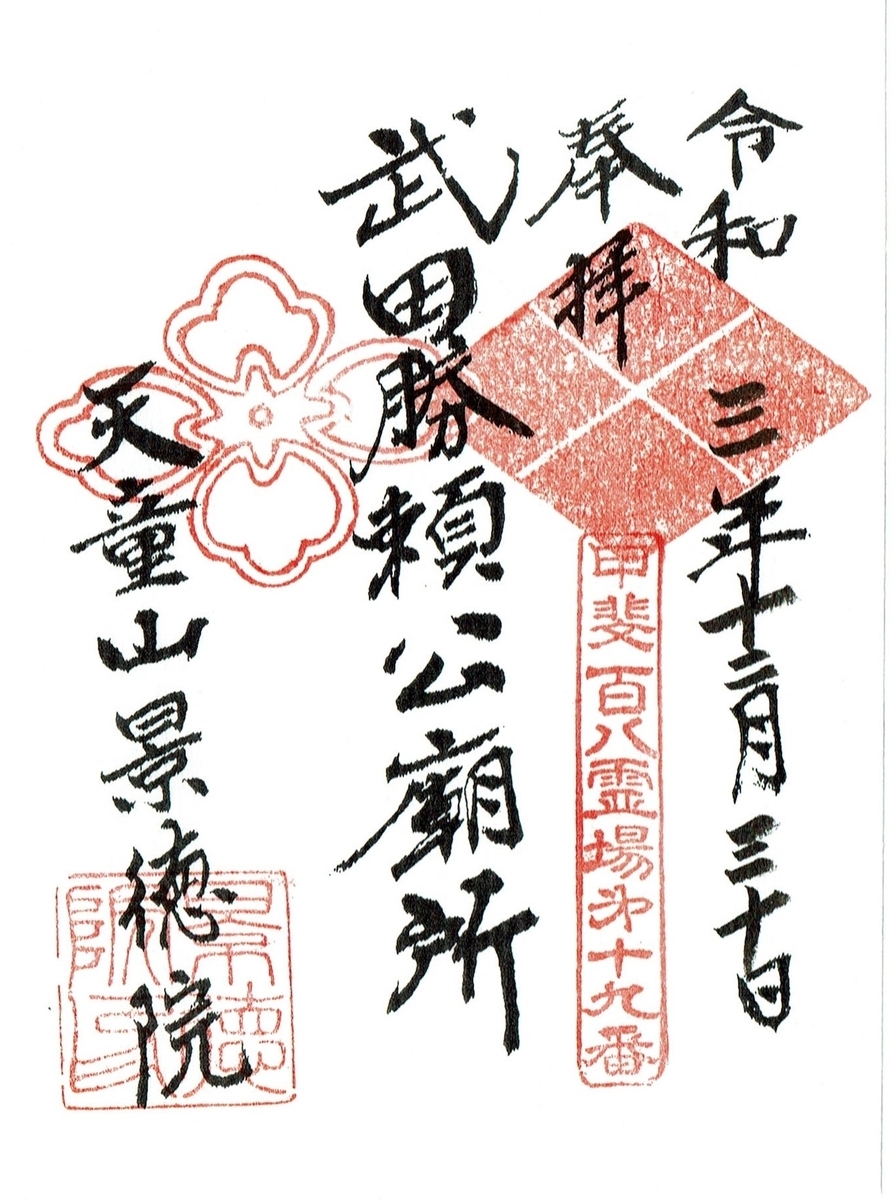 令和三年十二月三十日
奉拝
甲斐百八霊場第十九番
武田勝頼公廟所
天童山景徳院
景徳院印